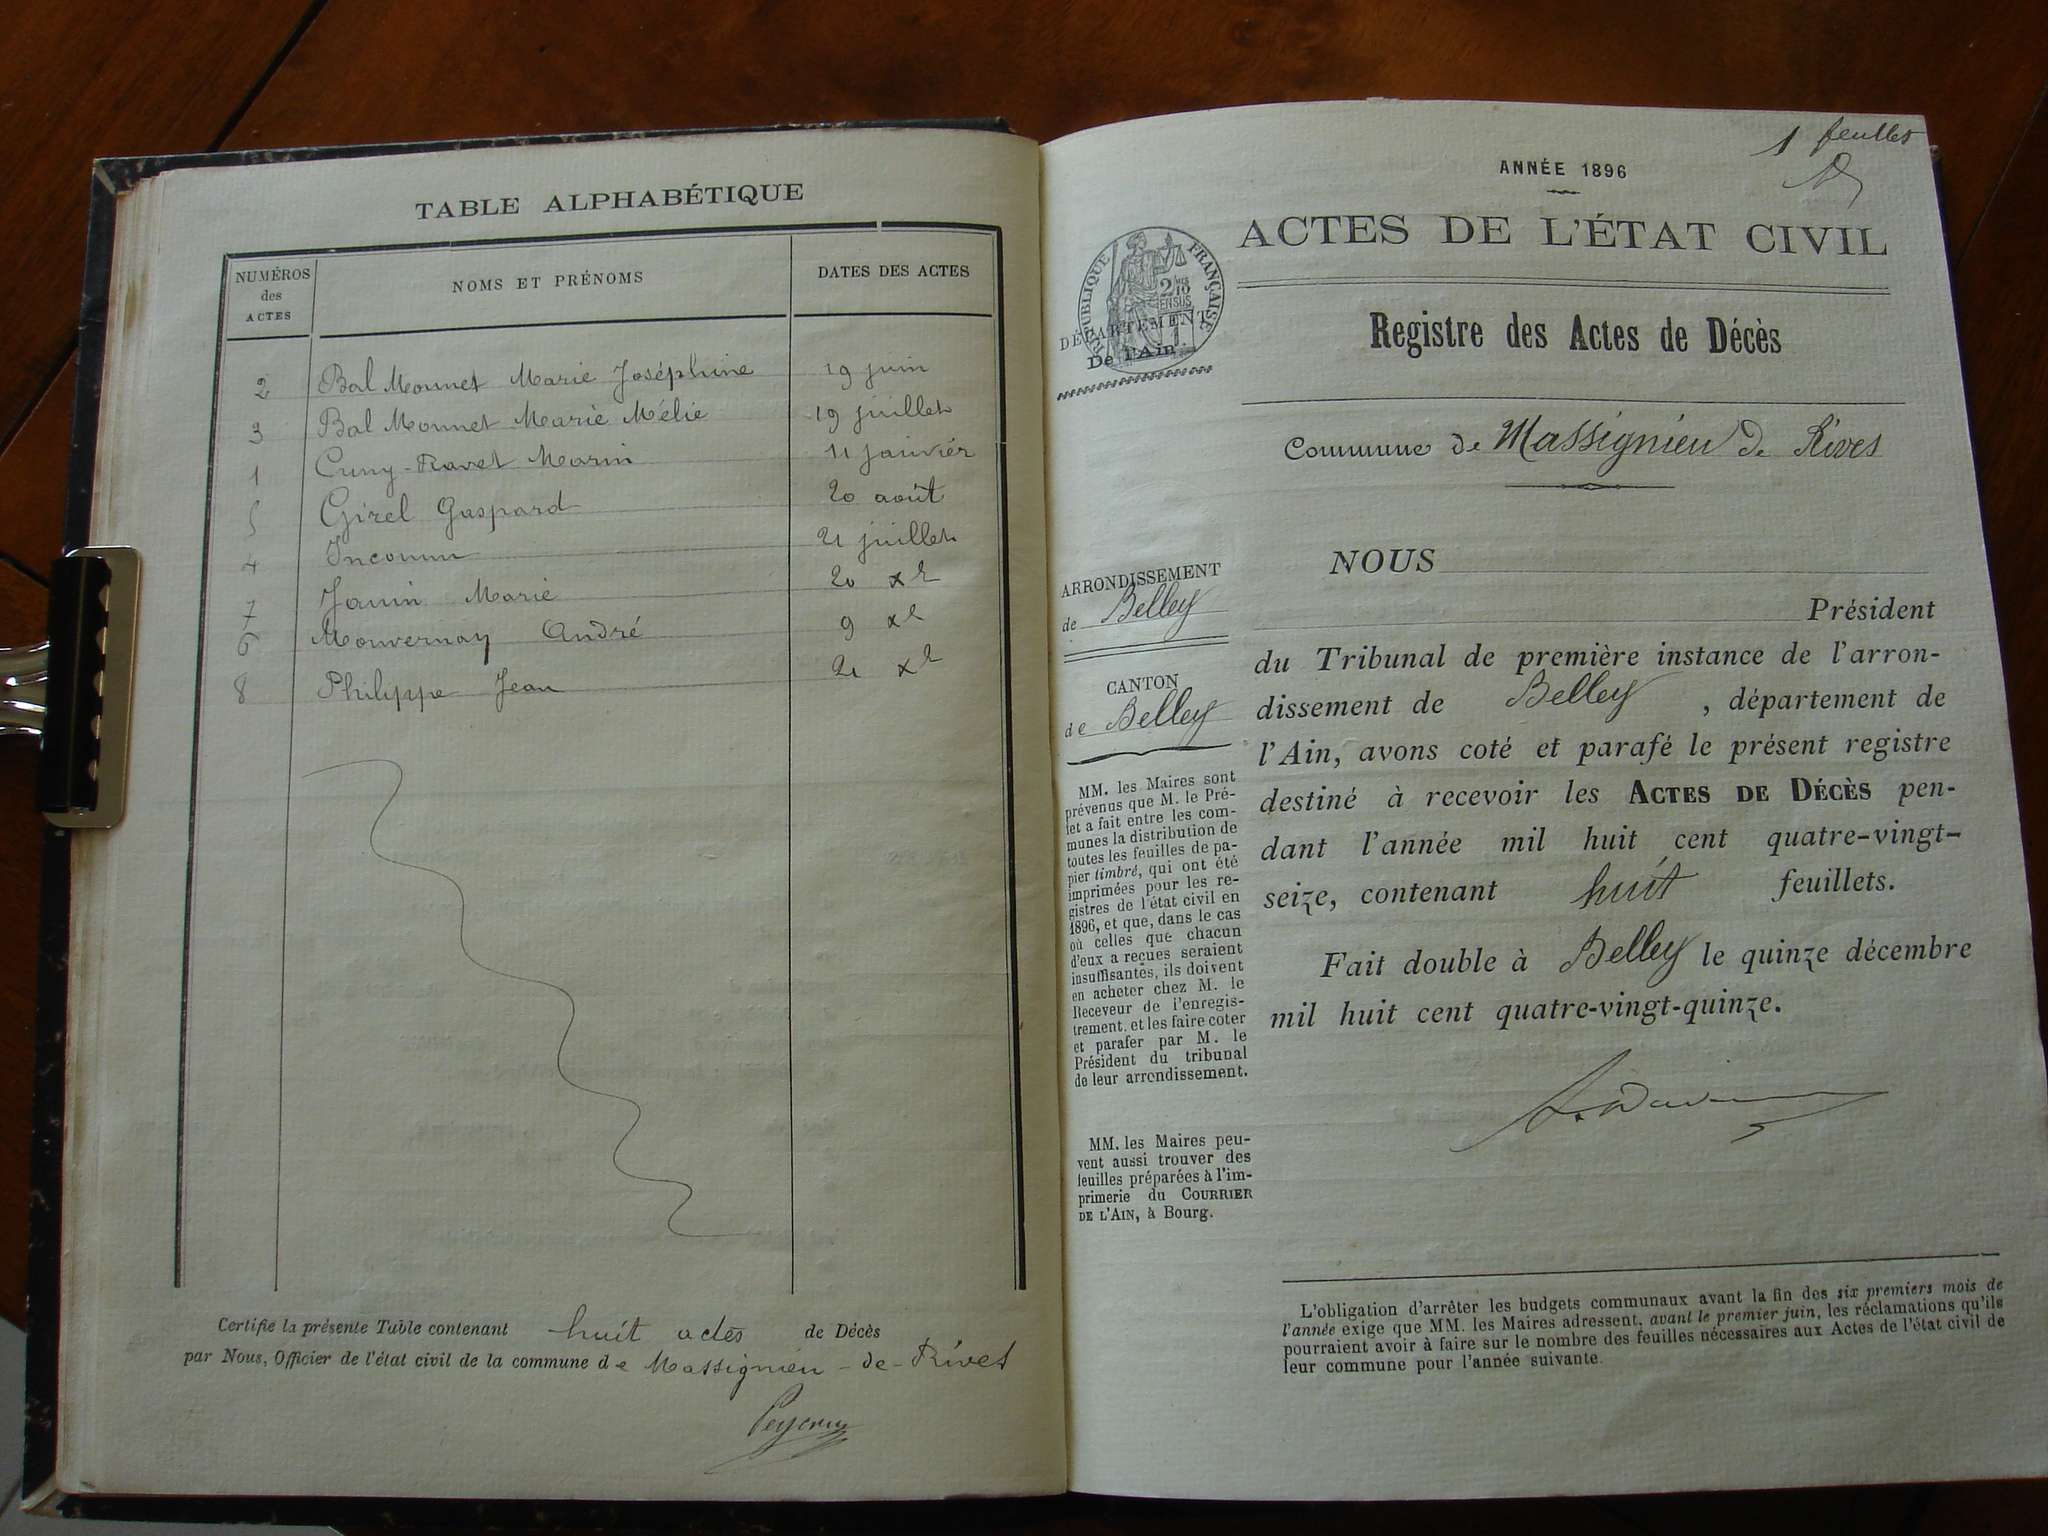 TABLE ALPHABÉTIQUE
NUMÉROS des ACTES NOMS ET PRÉNOMS DATES DES ACTES
2 Bal Monnet Marie Joséphine 19 juin
3 Bal Monnet Marie Mélie 19 juillet
1 Cuny-Ravet Marin 11 janvier
5 Girel Gaspard 20 août
4 Inconnu 21 juillet
7 Janin Marie 20 xe
6 Mouvernay André 9 xe
8 Philippe Jean 21 xe
Certifié la présente Table contenant huit actes de Décès
par Nous, Officier de l'état civil de la commune de Massignieu-de-Rives
1 feuillet
ANNÉE 1896
ACTES DE L'ÉTAT CIVIL
RÉPUBLIQUE FRANÇAISE
DÉPARTEMENT
De l'Ain.
Registre des Actes de Décès
Commune de Massignieu de Rives
ARRONDISSEMENT
de Belley
CANTON
de Belley
MM. les Maires sont
prévenus que M. le Pré-
fet a fait entre les com-
munes la distribution de
toutes les feuilles de pa-
pier timbré, qui ont été
imprimées pour les re-
gistres de l'état civil en
1896, et que, dans le cas
où celles que chacun
d'eux a reçues seraient
insuffisantes, ils doivent
en acheter chez M. le
Receveur de l'enregis-
trement, et les faire coter
et parafer par M. le
Président du tribunal
de leur arrondissement.
MM. les Maires peu-
vent aussi trouver des
feuilles préparées à l'im-
primerie du COURRIER
DE L'AIN, à Bourg.
NOUS
Président
du Tribunal de première instance de l'arron-
dissement de Belley, département de
l'Ain, avons coté et parafé le présent registre
destiné à recevoir les ACTES DE DÉCÈS pen-
dant l'année mil huit cent quatre-vingt-
seize, contenant huit feuillets.
Fait double à Belley le quinze décembre
mil huit cent quatre-vingt-quinze.
L'obligation d'arrêter les budgets communaux avant la fin des six premiers mois de
l'année exige que MM. les Maires adressent, avant le premier juin, les réclamations qu'ils
pourraient avoir à faire sur le nombre des feuilles nécessaires aux Actes de l'état civil de
leur commune pour l'année suivante.